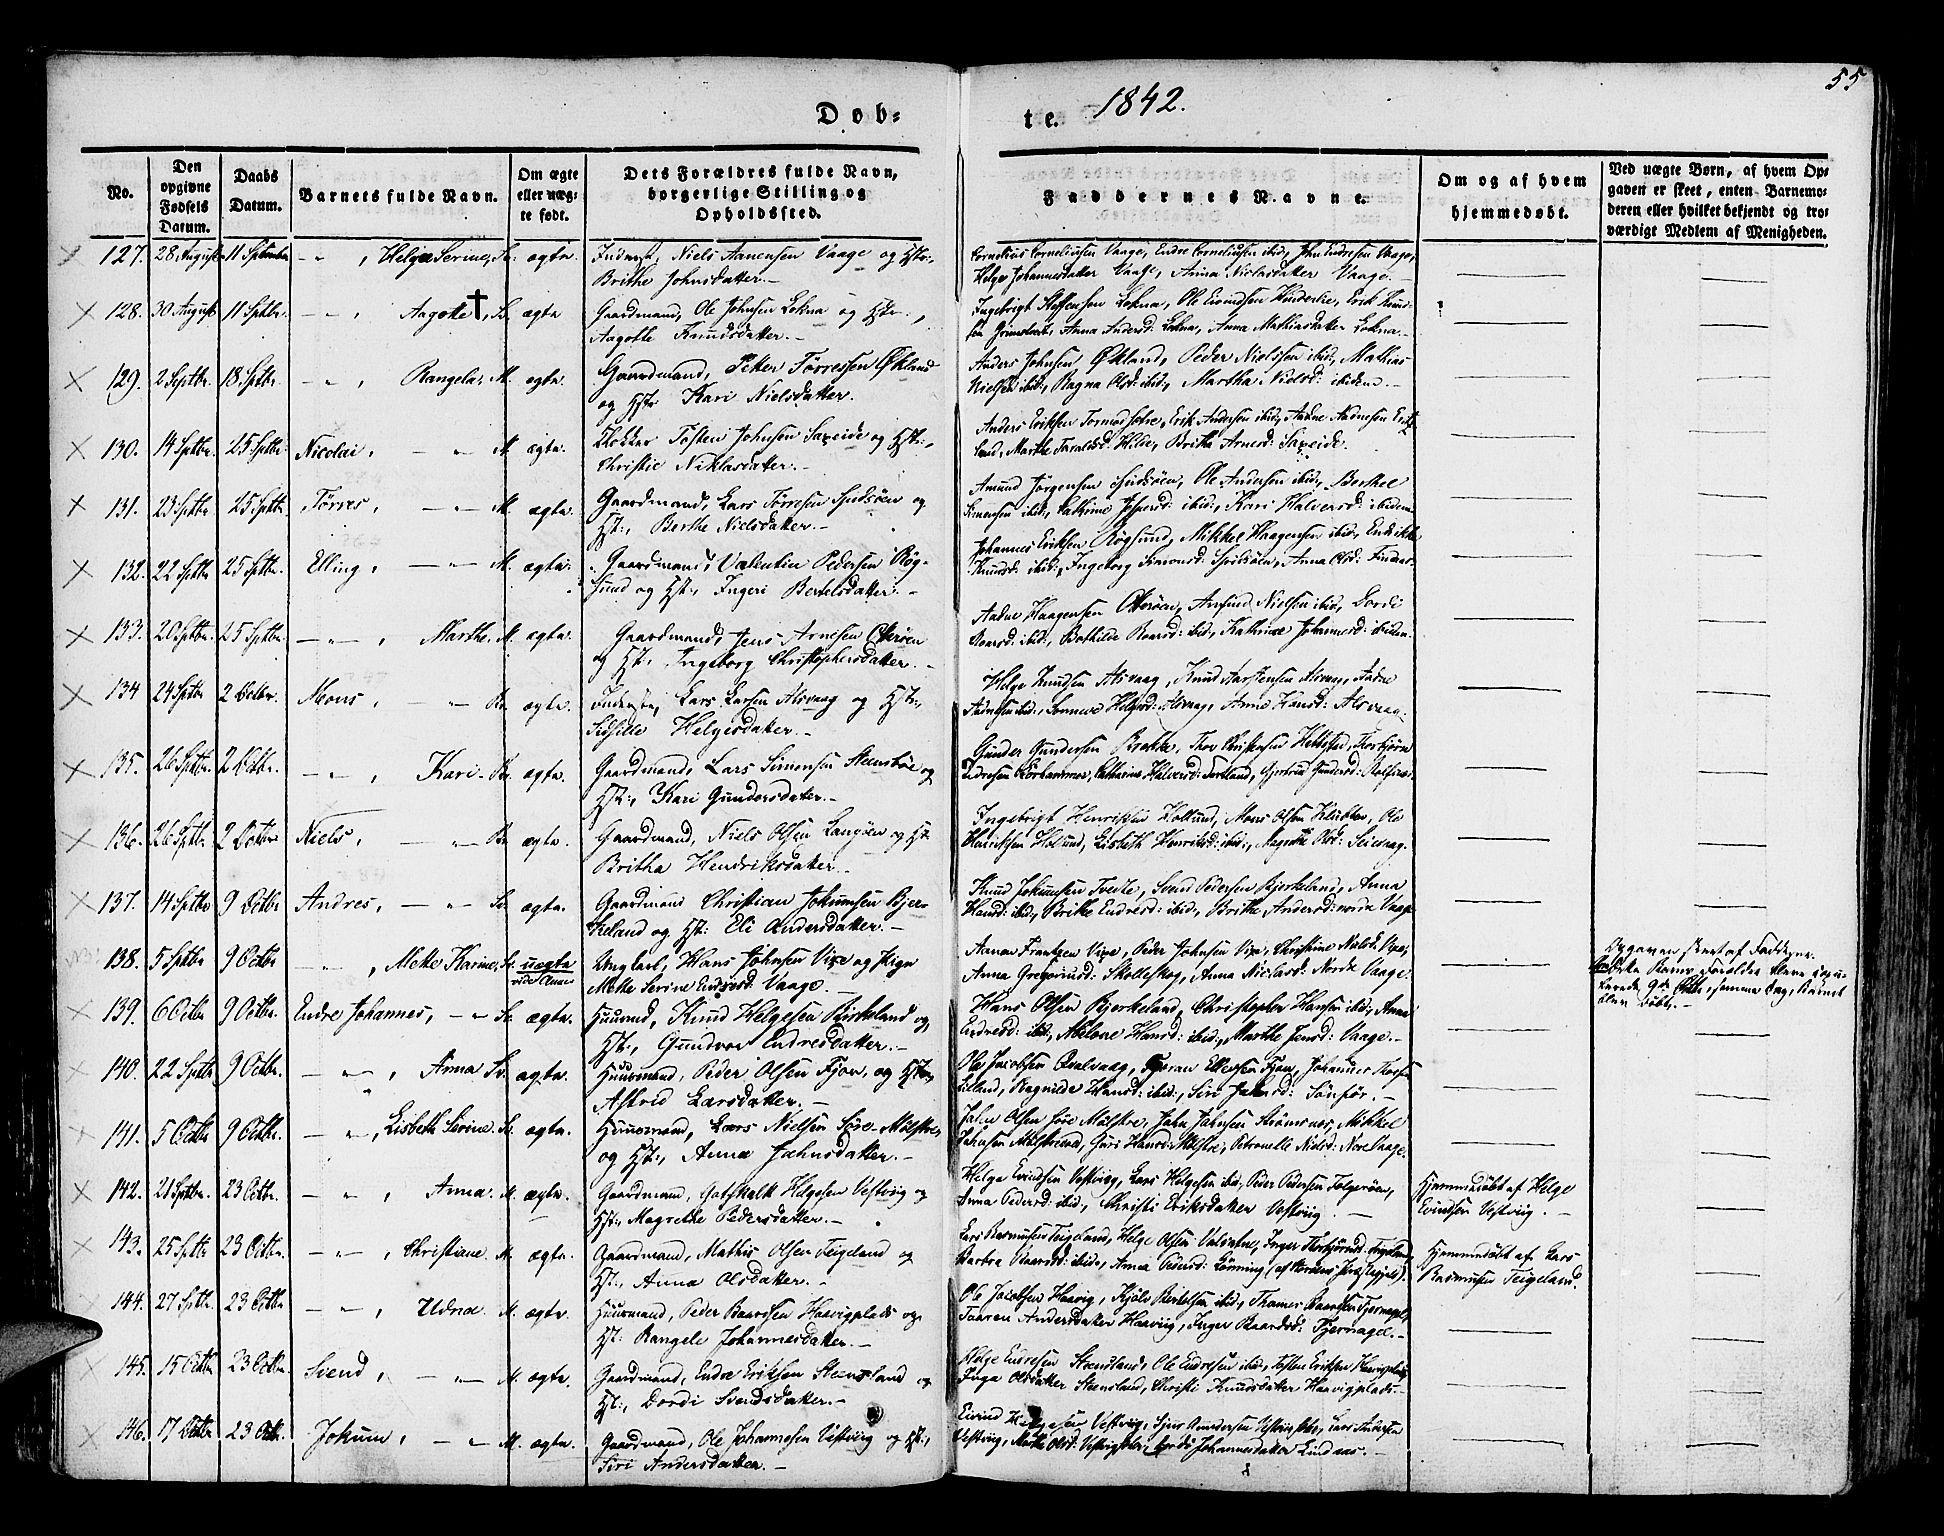 55
Døb-
te. 1842.
No.
Den opgivne Fødsels Datum.
Daabs Datum.
Barnets fulde Navn.
Om ægte eller uægte født.
Dets Forældres fulde Navn, borgerlige Stilling og Opholdssted.
Faddernes Navne.
Om og af hvem hjemmedøbt.
Ved uægte Børn, af hvem Opgaven er skeet, enten Barnemoderen eller hvilket bekjendt og troværdigt Medlem af Menigheden.
127. 28 August 11 Septembr — „ , Helga Serine, Sv. ægte. Inderst, Niels Aanensen Vaage og Hstr:
Brithe Johnsdatter.— Cornelius Corneliussen Vaage, Endre Corneliussen ibid, John Endresen Vaage,
Helge Johannesdatter Vaage, Anna Niclasdatter Vaage.
128. 30 August 11 Sptbr. — „ , Aagote †, Sv. ægte Gaardmand, Ole Johnsen Lokna og Hstr.,
Aagotte Knudsdatter.— Ingebrigt Steffensen Lokna, Ole Eivindsen Hinderlie, Erik Knud-
sen Grimstvedt, Anna Andersd: Lokna, Anna Mathiasdatter Lokna.—
129. 2 Septbr. 18 Sptbr. — „ , Rangela, M. ægte. Gaardmand, Peter Tørressen Økland
og Hstr: Kari Nielsdatter. Anders Johnsen Økland, Peder Nielssen ibid, Mathias
Nielsen ibid, Ragna Olsd: ibid, Martha Nielsd: ibidem.—
130. 14 Sptbr. 25 Sptbr. Nicolai, — „ M. ægte. Klokker Tosten Johnsen Saxeide og Hst:,
Christie Niklasdatter.— Anders Eriksen Tornessætre, Erik Andersen ibid, Aadne Aadnesen
land, Marthe Taraldsd: Hilde, Brithe Arnesd: Saxeide.
131. 23 Sptbr 25 Sptbr. Tørres, — „ M. ægte. Gaardmand, Lars Tørresen Spidsøen og
Hst:, Berthe Nielsdatter.— Amund Jørgensen Spidsøen, Ole Andersen ibid, Berthel
Simensen ibid, Cathrine Jespersd: ibid, Kari Halversd: ibidem
132. 22 Sptbr 25 Sptbr. Elling, — „ M. ægte. Gaardmand, Valentin Pedersen Røg-
sund og Hst:, Ingeri Bertelsdatter.— Johannes Eriksen Røgsund, Mikkel Haagensen ibid,
Knudsd: ibid, Ingeborg Simonsd: Spidsøen, Anna Olsd:
133. 20 Sptbr. 25 Sptbr. — „ Marthe. M. ægte. Gaardmand, Jens Arnesen Otterøen
og Hst:, Ingeborg Christophersdatter.— Aadne Haagensen Otterøen, Amund Nielsen ibid, Gordi
Roarsd: ibid, Bothilde Roarsd: ibid, Kathrine Johannesd: ibidem.
134 24 Sptbr 2 Octbr. Mons, — „ Br. ægte. Inderste, Lars Larsen Alsvaag og Hst:,
Sidsille Helgesdatter.— Helge Knudsen Alsvaag, Knud Aarstensen Alsvaag, Aadne
Aadnesen ibid, Sonneve Helgesd: Alsvaag, Anne Hansd: Alsvaag.
135. 26 Sptbr. 2 Octbr. — „ , Kari. Br. ægte. Gaardmand, Lars Simensen Steensbøe og
Hst:, Kari Gundersdatter.— Gunder Gundersen Brække, Thor Christensen Hettsten, Thorbjørn
136. 26 Sptbr. 2 Octbr Niels, — „ Br. ægte. Gaardmand, Niels Olsen Langøen og Hst:
Britha Hendriksdatter.— Ingebrigt Henriksen Hollund, Mons Olsen Klubben, Ole
Henriksen Holund, Lisbeth Henriksd: ibid:, Magrethe Olsd: Seievaag.
137. 14 Sptbr 9 Octbr Andres, — „ Sv. ægte. Gaardmand Christian Jokumsen Bjer-
keland og Hst: Eli Andersdatter.— Knud Jokumsen Tvedte, Svend Pedersen Bjerkeland, Anna
Hansd: ibid, Brithe Endresd: ibid, Brithe Andersd: nordre Vaage
138. 5 Sptbr 9 Octbr — „ , Mette Karine, Sv. uægte Ungkarl, Hans Johnsen Vixe og Pigen
Mette Serine Endresd: Vaage.— Aanen Frantzen Vixe, Peder Johnsen Vixe, Christine Nielsd: Vixe,
Anna Gregoriusd: Skelleskog, Anna Niclasd: Nordre Vaage. Opgaven skeet af Fadderne.
139. 6 Octbr 9 Octbr. Endre Johannes, — „ Sv. ægte. Huusmd, Knud Helgesen Birkeland og
Hst:, Gundvor Endresdatter.— Hans Olsen Bjerkeland, Christopher Hansen ibid, Anna
Endresd: ibid, Abelone Hansd: ibid, Marthe Jensd: Vaage.—
140. 22 Sptbr 9 Octbr. — „ , Anna Sv. ægte. Huusmand, Peder Olsen Fjon, og Hstr,
Astrid Larsdatter.— Ole Jacobsen Qvalvaag, Ellessen Fjon, Johannes
Ragnilde Hansd: ibid, Siri Jahnsd: Sønfør.—
141. 5 Octbr 9 Octbr. — „ , Lisbeth Serine. Sv. ægte. Huusmand, Lars Nielsen Søre-Mølstre,
og Hst:, Anna Jahnsdatter.— Jahn Olsen søre Mølstre, Jahn Jahnsen Strømsnes, Mikkel
Jahnsen Mølstrevad, Guri Hansd: Mølstre, Petronelle Nielsd: Nore Vaage.
142. 21 Sptbr. 23 Octbr. — „ , Anna. M. ægte. Gaardmand, Gotskalk Helgesen Vestvig og
Hst:, Magrethe Pedersdatter.— Helge Evindsen Vestvig, Lars Helgesen ibid, Peder Pedersen Folgerøen,
Anna Pedersd: ibid, Christi Eriksdatter Vestvig. Hjemmedøbt af Helge
Evindsen Vestvig.—
143. 25 Sptbr 23 Octbr. — „ , Christiane. M. ægte. Gaardmand, Mathis Olsen Teigeland og
Hst:, Anna Olsdatter.— Lars Rasmussen Teigeland, Helge Olsen Valvatne, Inger Thorbjørnsd: Teigeland,
Barbra Baarsd: ibid, Anna Pedersd: Lønning Hjemmedøbt af Lars
Rasmusen Teigeland.
144. 27 Sptbr. 23 Octbr — „ , Udna. M. ægte. Huusmand, Peder Baardsen Haavigplads og
Hst: Rangele Johannesdatter.— Ole Jacobsen Haavig, Kjøls Bertelsen ibid, Thomas Baardsen Fjernagel,
Taaren Andersdatter Haavig, Inger Baardsd: Tjernagel.—
145. 15 Octbr 23 Octbr. Svend, — „ M. ægte. Gaardmand, Endre Eriksen Steensland og
Hst:, Dordi Svendsdatter.— Helge Endresen Steensland, Ole Endresen ibid, Tosten Eriksen Haavigplads,
Inga Olsdatter Steensland, Christi Knudsdatter Haavigplads.—
146. 17 Octbr 23 Octbr. Jokum, — „ M. ægte. Gaardmand, Ole Johannesen Vestvig og Hst:,
Siri Andersdatter.— Eivind Helgesen Vestvig, Sjur Amundsen
Vestvig, Marthe Olsd: Johannesdatter Lindaas.—